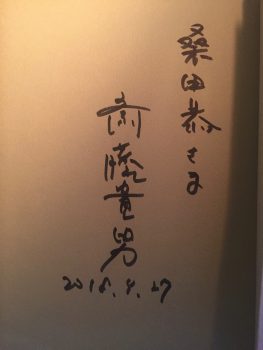 桑田恭さま
斎藤貴男
2018.9.27